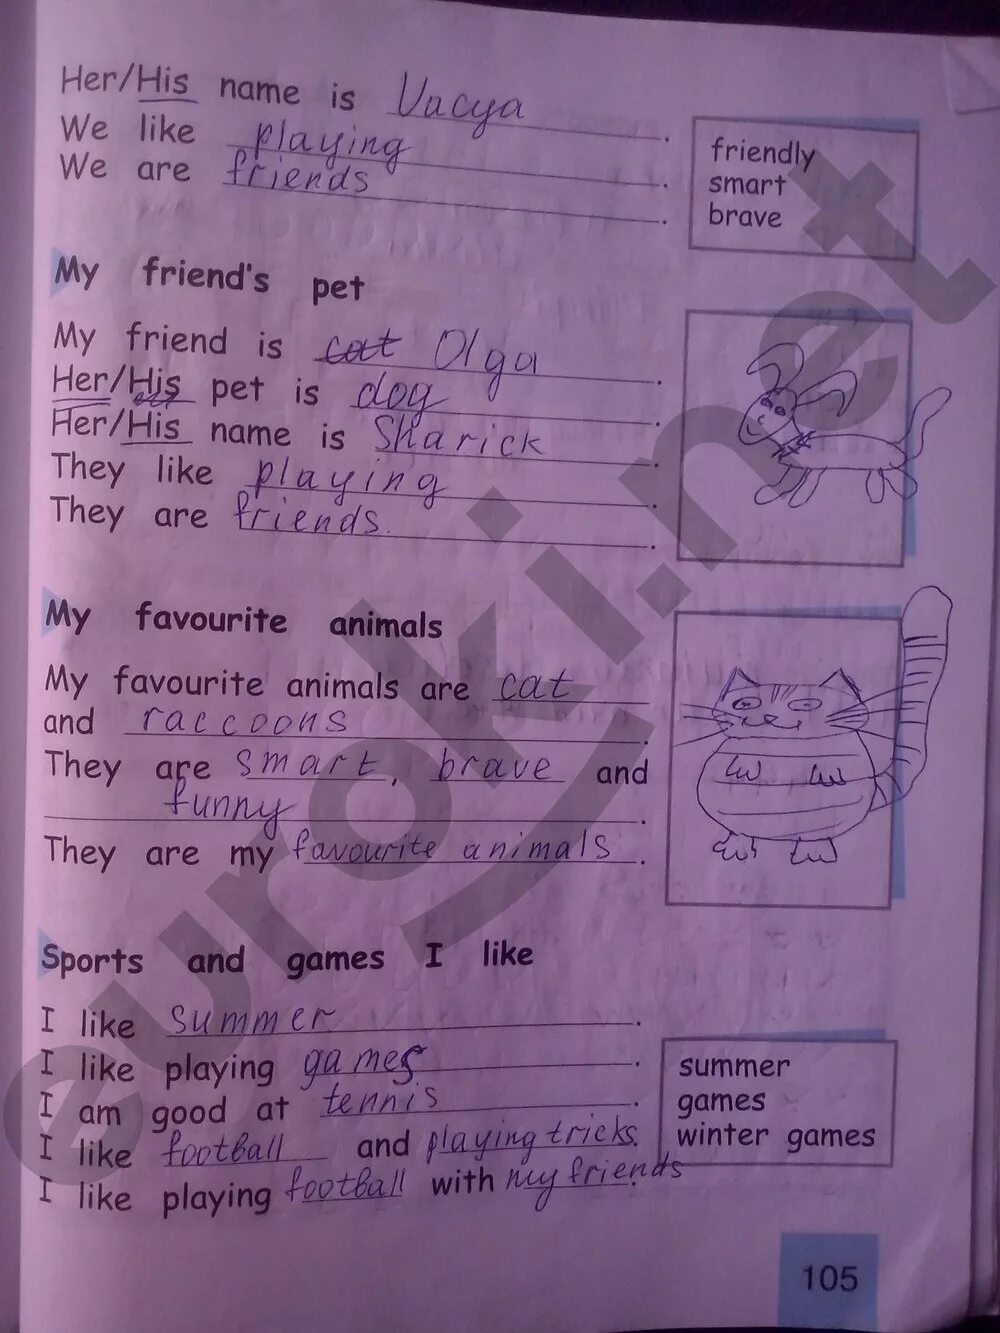 Her/His name is Vacya.
We like playing.
We are friends.
friendly
smart
brave
My friend's pet
My friend is cat Olga.
Her/His pet is dog.
Her/His name is Sharick.
They like playing.
They are friends.
My favourite animals
My favourite animals are cat
and raccoons.
They are smart, brave and
funny.
They are my favourite animals.
Sports and games I like
I like summer.
I like playing games.
I am good at tennis.
I like football and playing tricks.
I like playing football with my friends.
summer
games
winter games
105
euroki.net